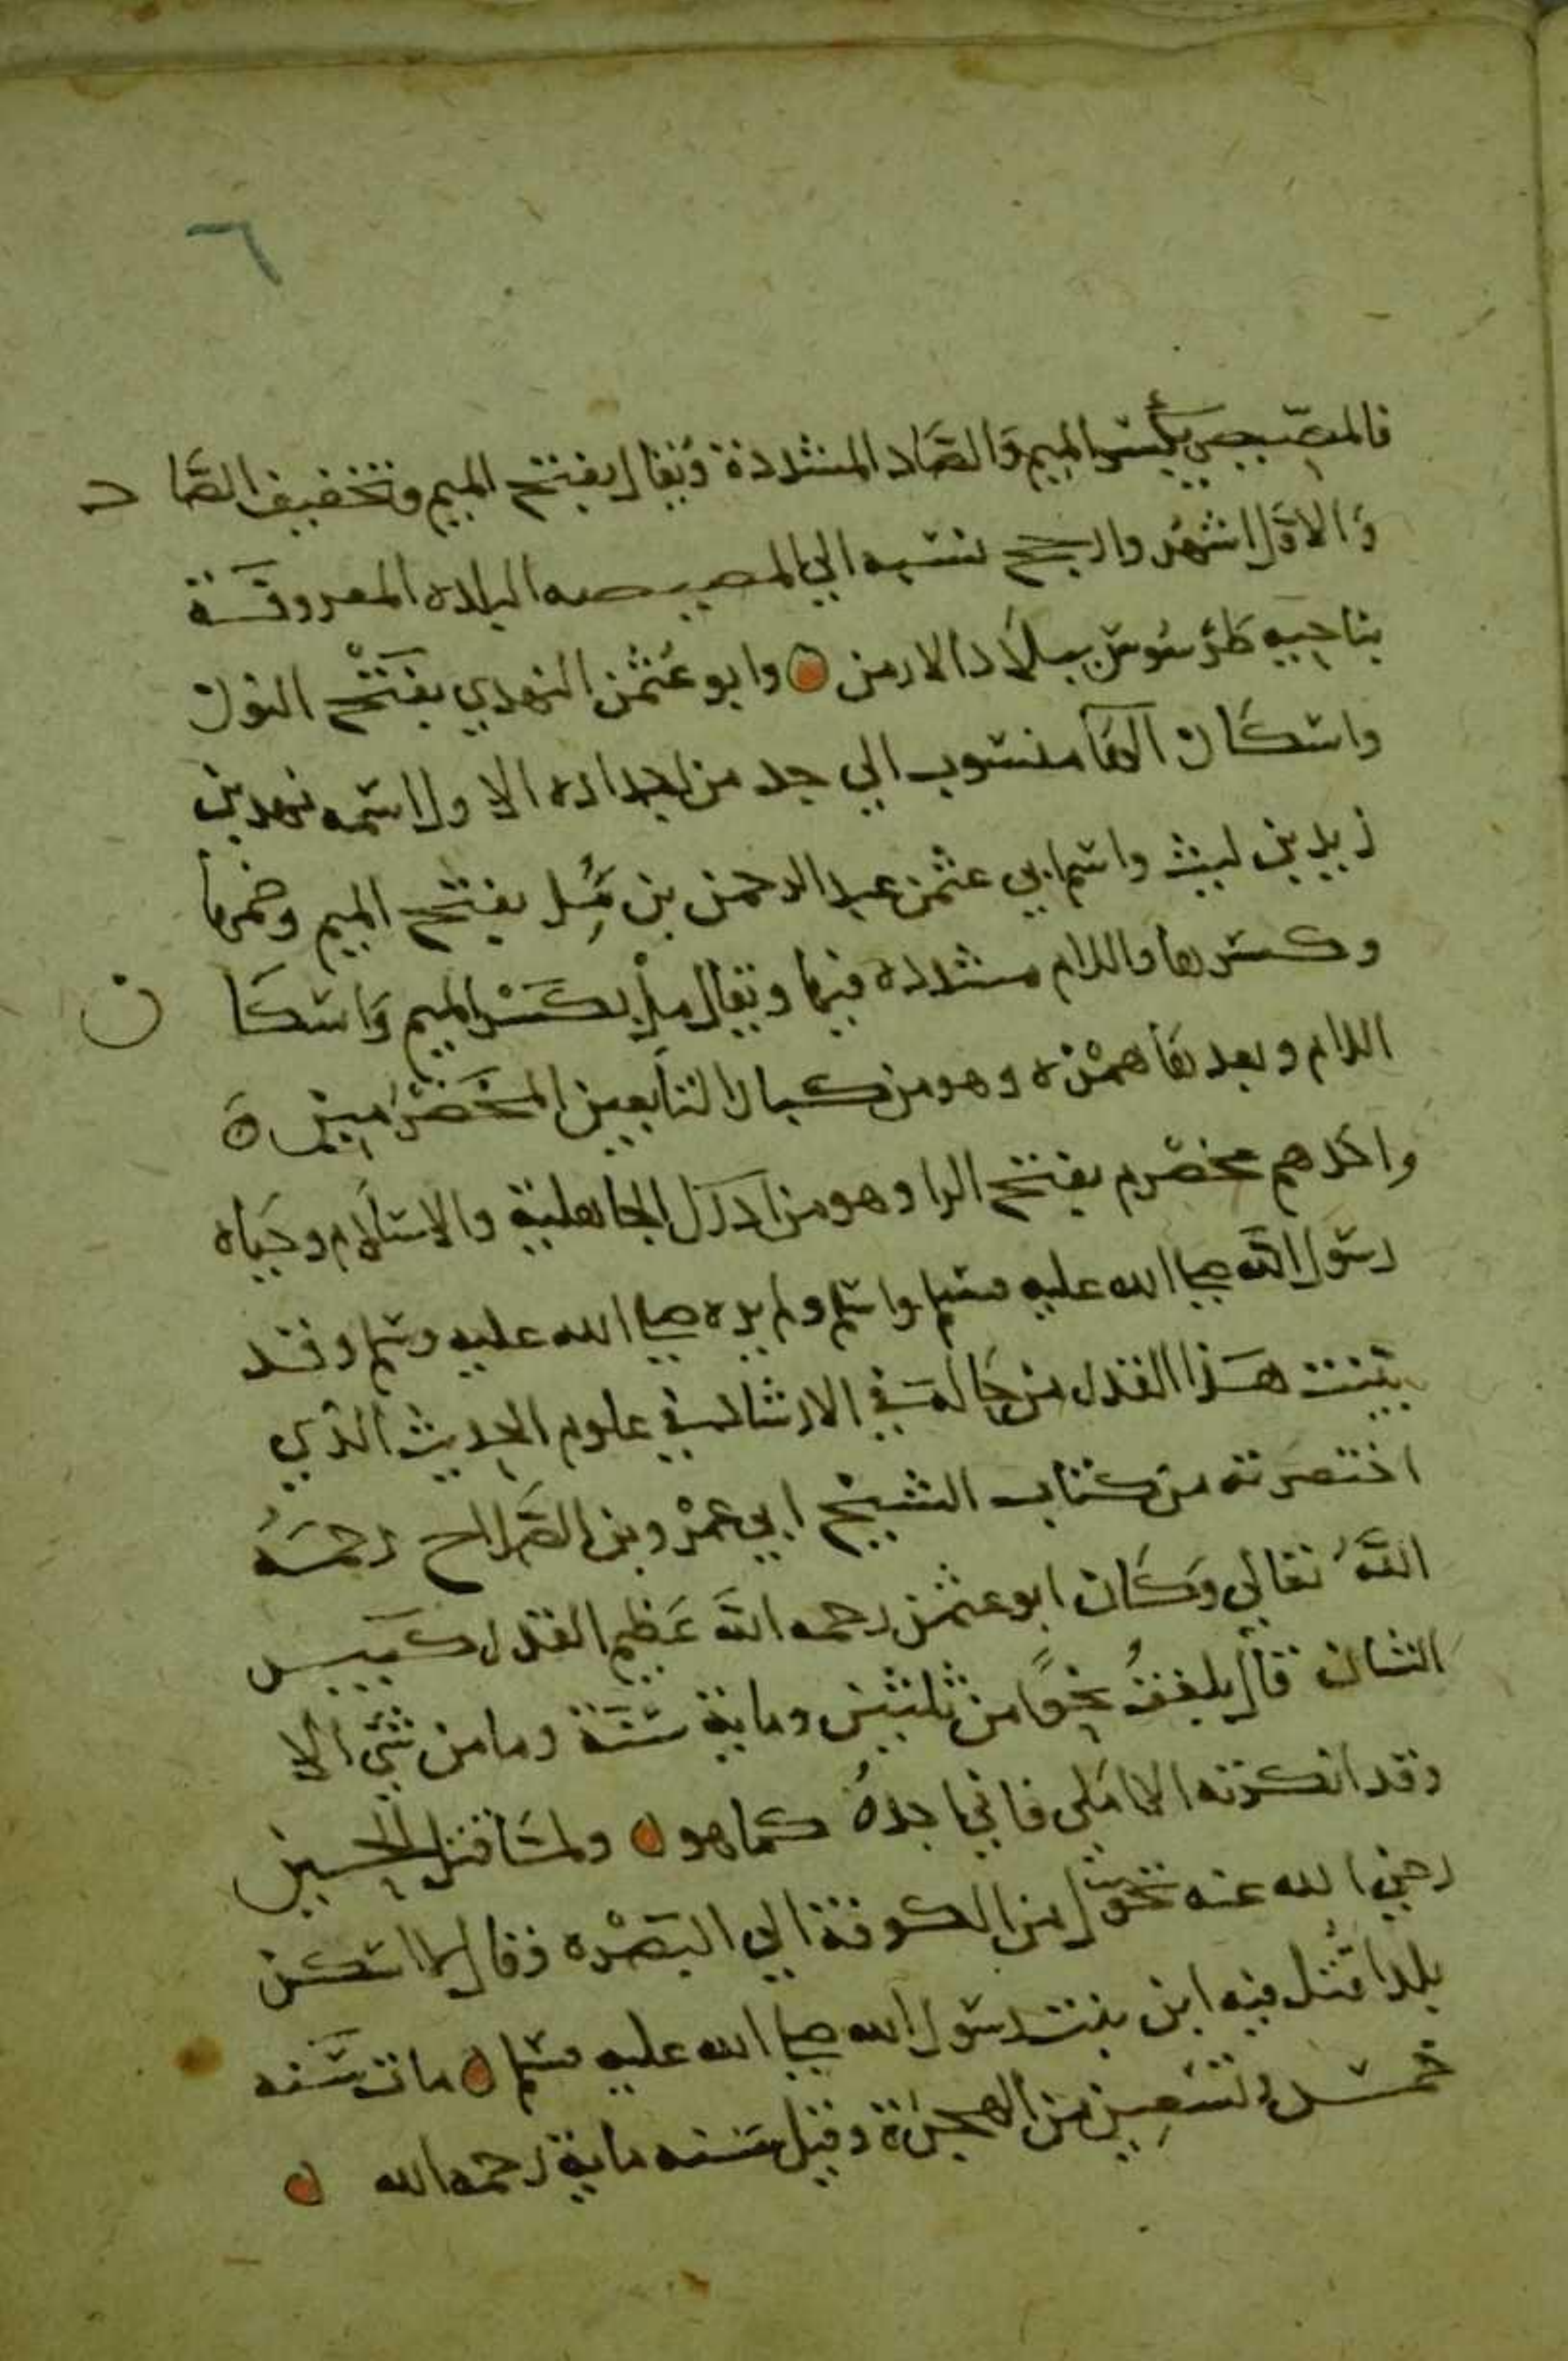 ٦
فالمصّيصي بكسر الميم والصّاد المشددة ويقال بفتح الميم وتخفيف الصاد
والاول اشهر وارجح نسبه الي المصيصه البلده المعروفة
بناحيه طرسوس ببلاد الارمن وابو عثمن النهدي بفتح النون
واسكان الها منسوب الي جد من اجداده الاول اسمه نهد بن
زيد بن ليث واسم ابي عثمن عبد الرحمن بن مل بفتح الميم وضمها
وكسرها واللام مشدده فيها ويقال ملْ بكسْر الميم واسكان
اللام وبعدها همْزه وهو من كبار التابعين المخضْرمين
واحدهم مخضرم بفتح الرا وهو من ادرك الجاهلية والاسلام وحياه
رسول الله صلى الله عليه وسلم واسلم ولم يره صلى الله عليه وسلم وقد
بينت هذا القدر من حاله في الارشاد في علوم الحديث الذي
اختصرته من كتاب الشيخ ابي عمرْو بن الصلاح رحمه
الله تعالي وكان ابو عثمن رحمه الله عظيم القدر كبير
الشان قال بلغتُ نحوًا من ثلثين وماية سنة وما من شي الا
وقد انكرته الا املي فاني اجدهُ كما هو ولما قتل الحسين
رضي الله عنه تحول من الكوفة الي البصْره وقال لا اسكن
بلدا قتل فيه ابن بنت رسول الله صلى الله عليه وسلم مات سنه
خمس وتسعين من الهجرة وقيل سنه ماية رحمه الله